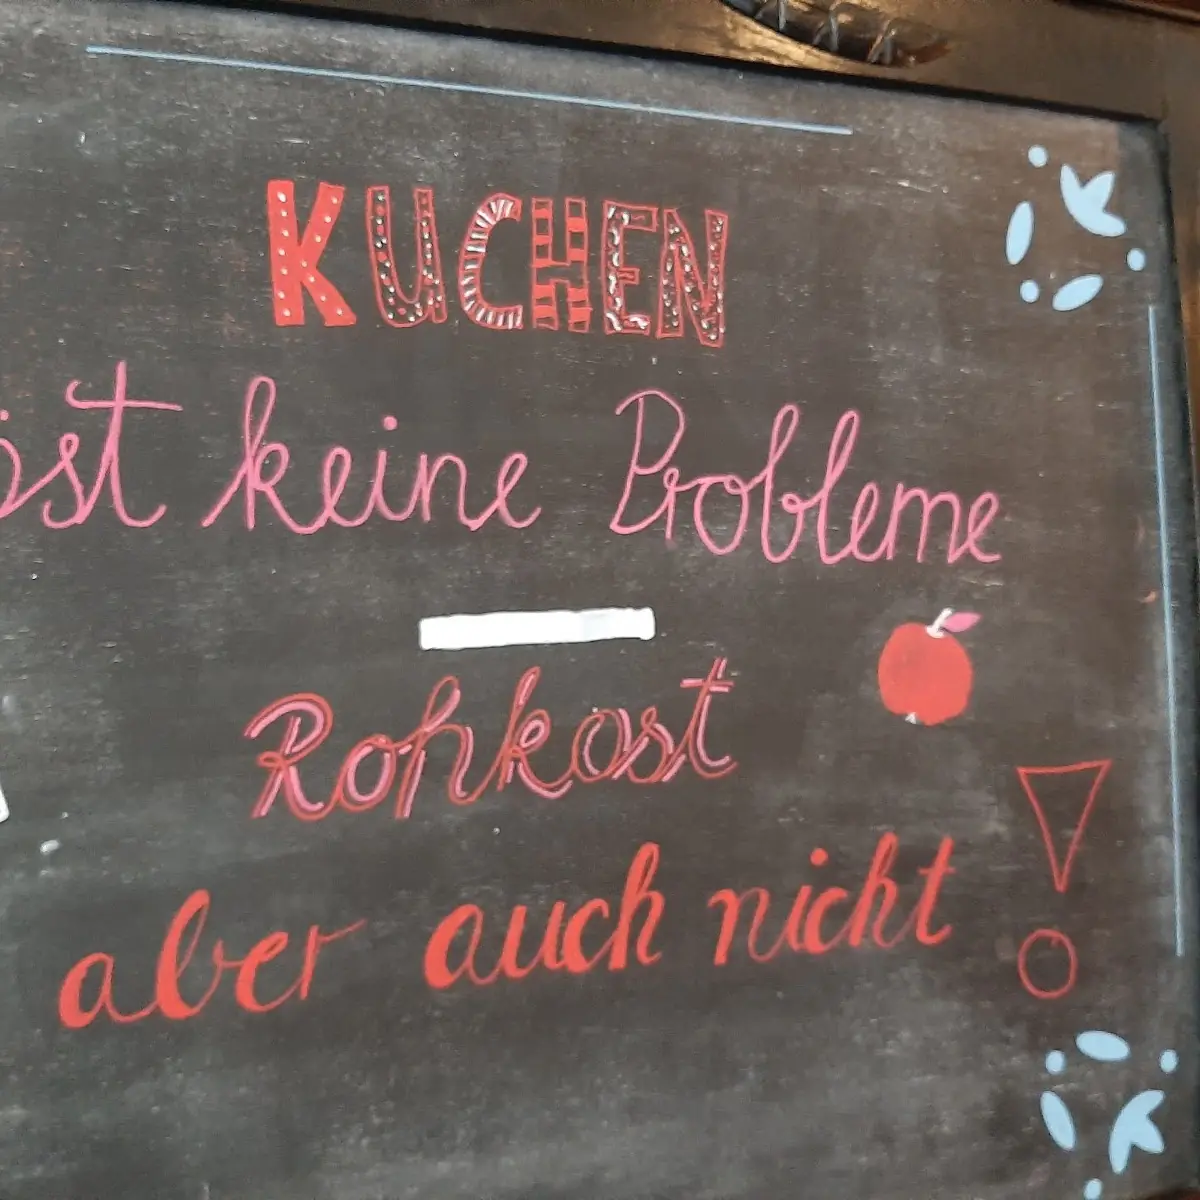 KUCHEN
öst keine Probleme
Rohkost
aber auch nicht!